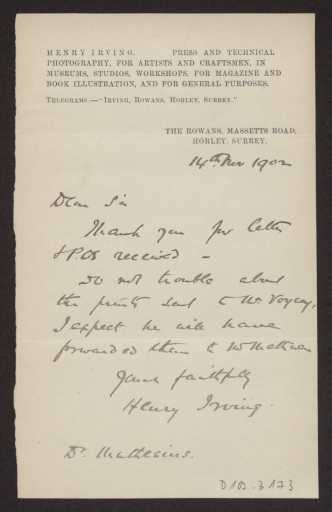 HENRY IRVING. PRESS AND TECHNICAL
PHOTOGRAPHY, FOR ARTISTS AND CRAFTSMEN, IN
MUSEUMS, STUDIOS, WORKSHOPS, FOR MAGAZINE AND
BOOK ILLUSTRATION, AND FOR GENERAL PURPOSES.
TELEGRAMS —"IRVING, ROWANS, HORLEY, SURREY."
THE ROWANS, MASSETTS ROAD,
HORLEY, SURREY.
14th Nov 1902
Dear Sir
Thank you for letter
& P.O. received —
Do not trouble about
the prints sent to Mr Voysey,
I expect he will have
forwarded them to
Yours faithfully
Henry Irving.
Dr. Muthesius.
D 102-3173